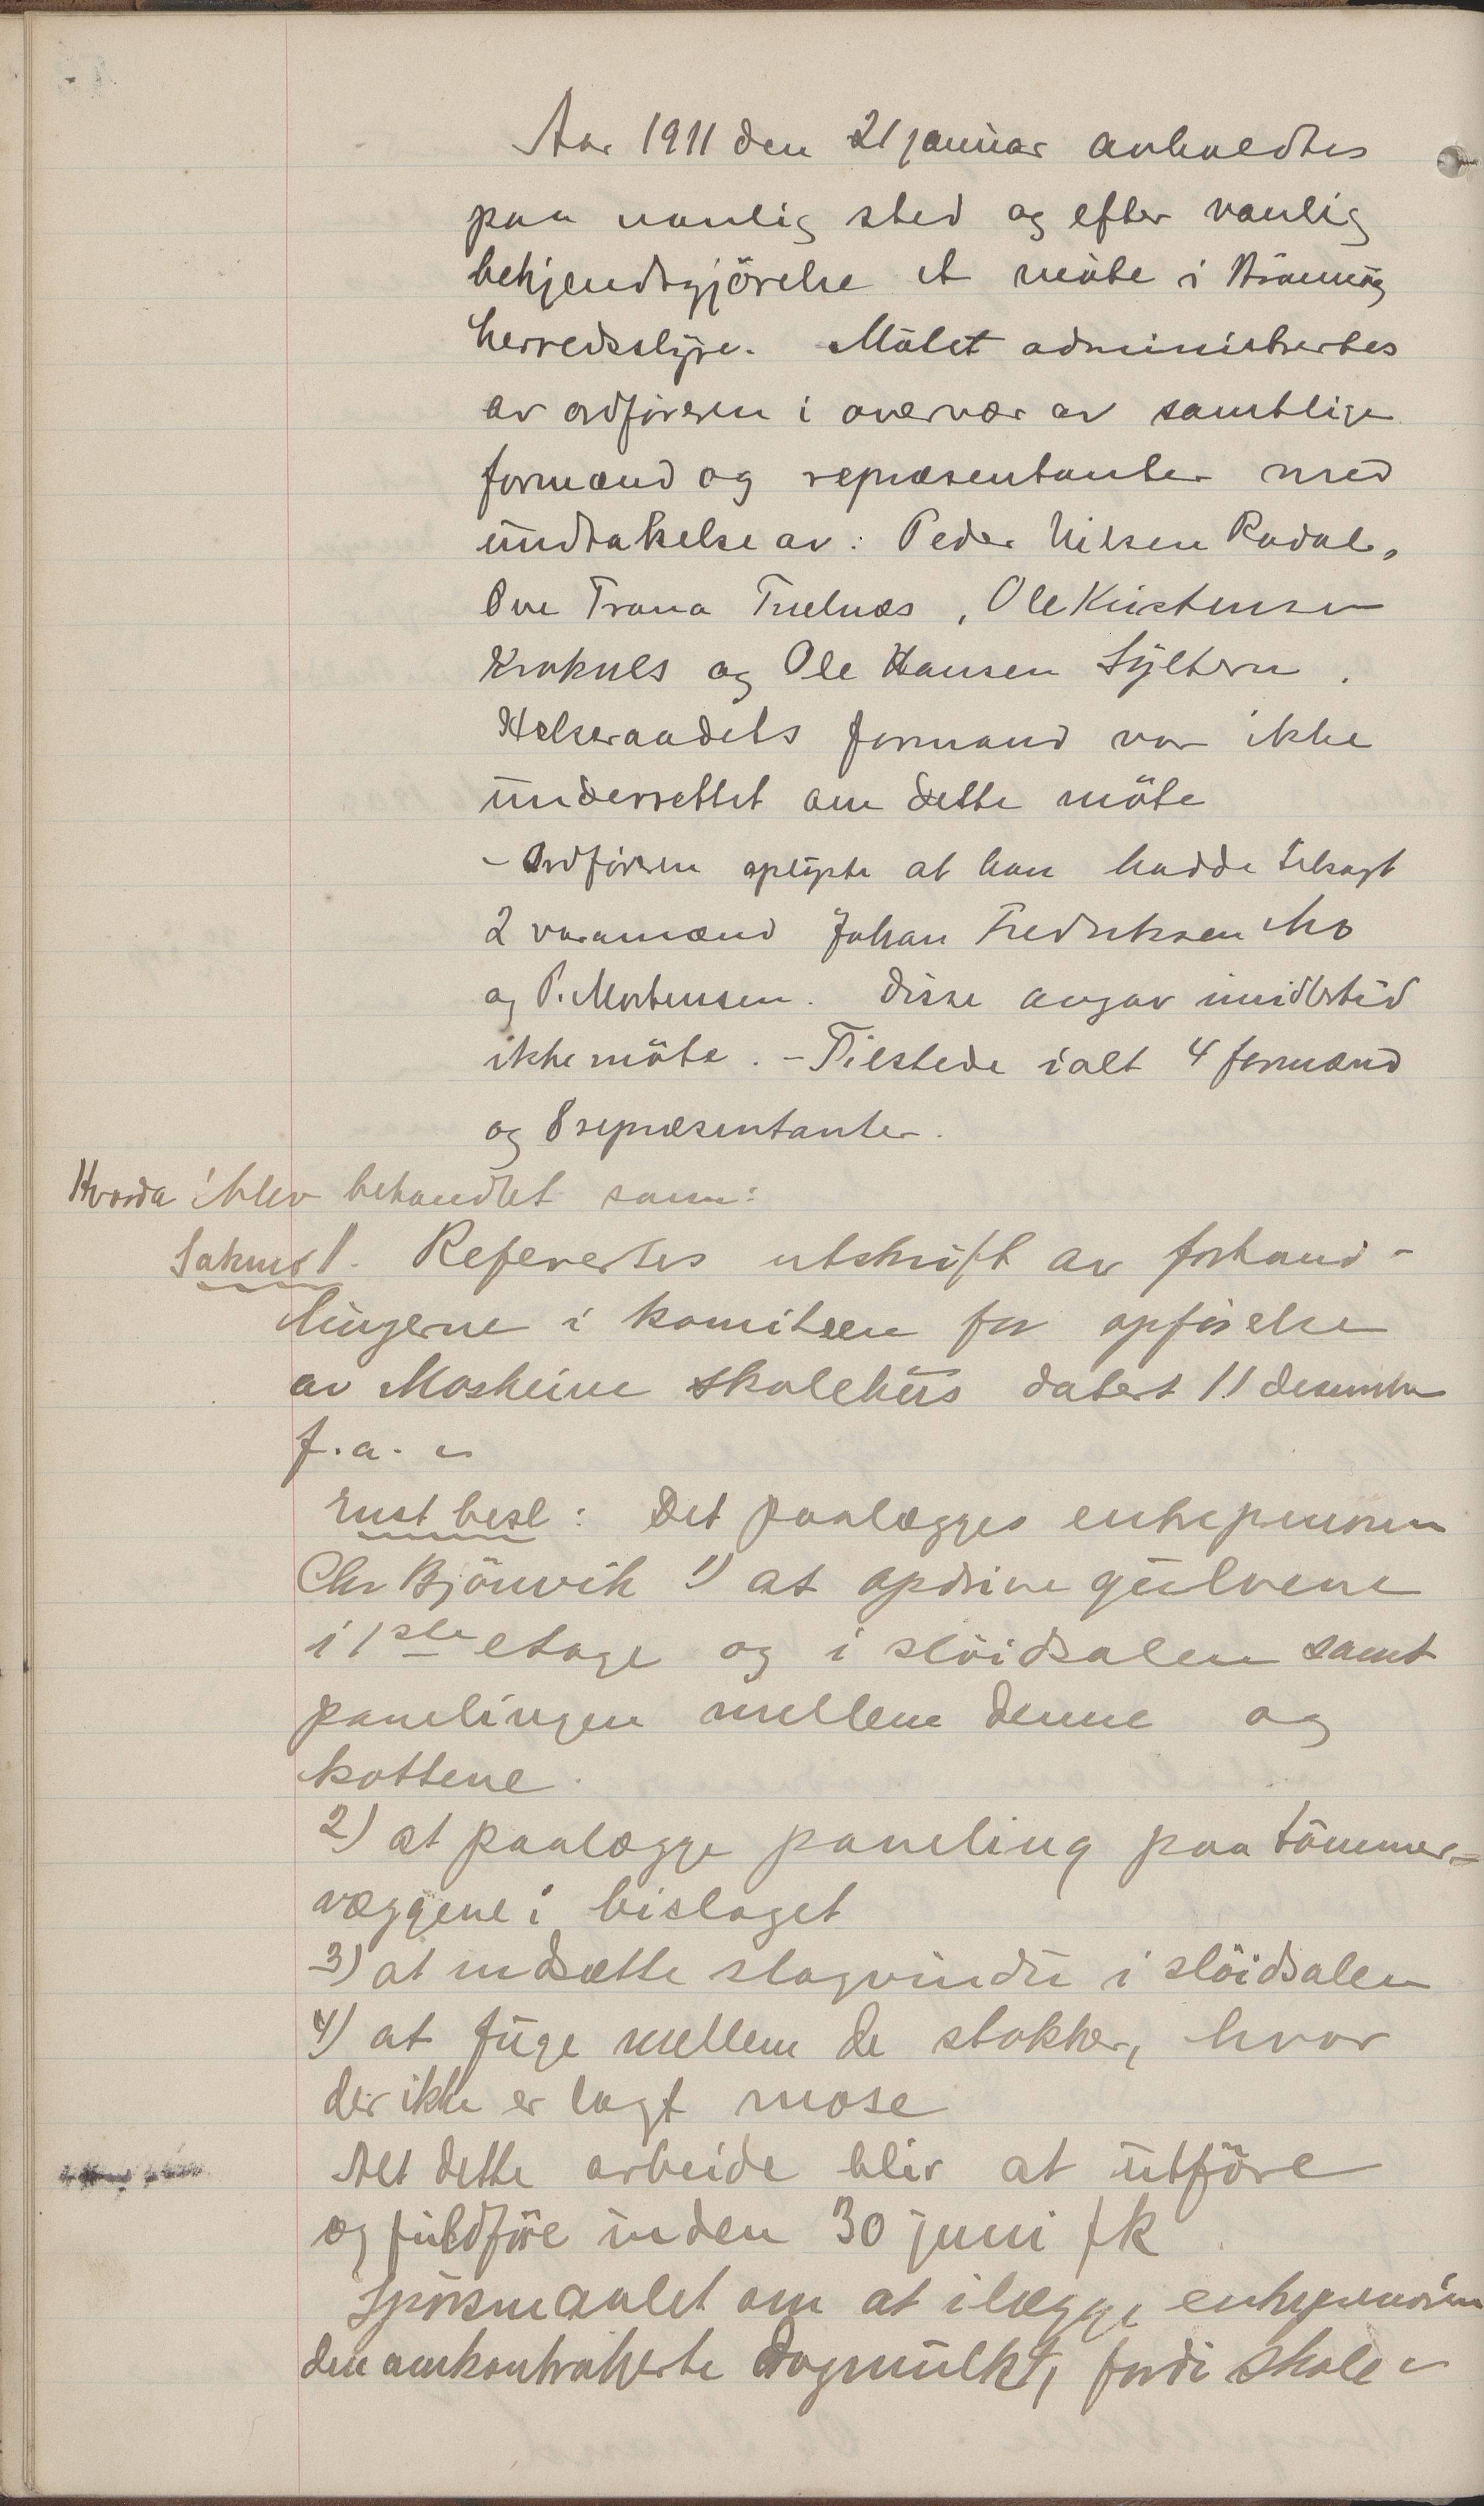 Aar 1911 den 21 januar avholdtes
paa vanlig sted og efter vanlig
bekjendtgjörelse et möte i Brönnöy
herredsstyre. Mötet administrertes
av ordföreren i overvær av samtlige
formænd og repræsentanter med
undtakelse av: Peder Nilsen Rodal,
Ove Trana Trælnæs, Ole Kristensen
Kroknes og Ole Hansen Sylteren.
Helseraadets formand var ikke
underrettet om dette möte
- Ordföreren oplyste at han hadde tilsagt
2 varamænd Johan Fredriksen Mo
og P. Mortensen. Disse avgav imidlertid
ikke möte. - Tilstede ialt 4 formænd
og 8 repræsentanter.
Hvorda blev behandlet som:
Saknr 1. Refertes utskrift av forhand-
lingerne i komiteen for opförelse
av Mosheim skolehus datert 11 desember
f.a. -
Enst besl: Det paalægges entreprenören
Chr Björnvik 1) at opdrive gulvene
i 1ste etage og i slöidsalen samt
panelingen mellem denne og
kottene.
2) at paalægge paneling paa tömmer=
væggene i bislaget
3) at indsætte slagvindu i slöidsalen
4) at fuge mellem de stokker, hvor
der ikke er lagt mose
Alt dette arbeide blir at utföre
og fuldföre inden 30 juni f k
Spörsmaalet om at ilægge entreprenören
den omkontraherte dagmulkt, fordi skole-